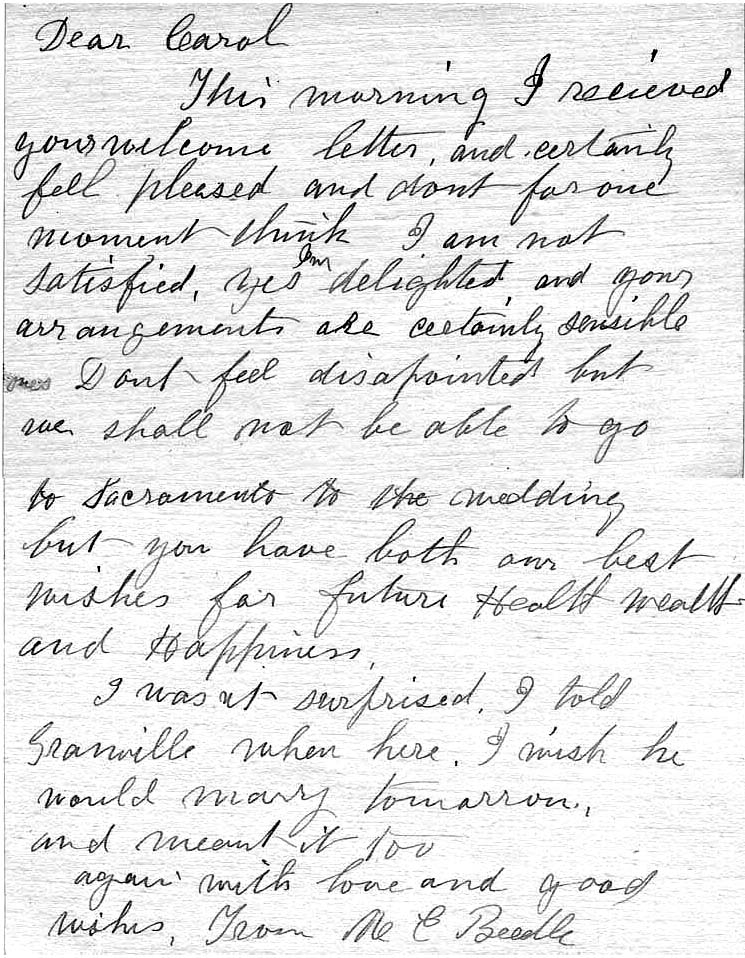 Dear Carol
This morning I recieved
your welcome letter, and certainly
fell pleased and dont for one
moment think I am not
satisfied, yes Im delighted and your
arrangements are certainly sensible
Dont feel disapointed but
we shall not be able to go
to Sacramento to the wedding
but you have both our best
wishes for future Health wealth
and Happiness,
I wasnt surprised, I told
Granville when here. I wish he
would marry tomorrow,
and meant it too
again with love and good
wishes, From M E Beedle